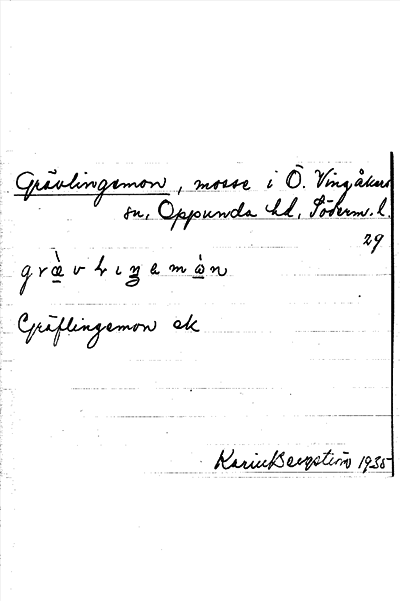 Grävlingsmon, mosse i Ö. Vingåkers
sn, Oppunda hd, Söderm. l.
29
Gräflingsmon ek
Karin Bergström 1935